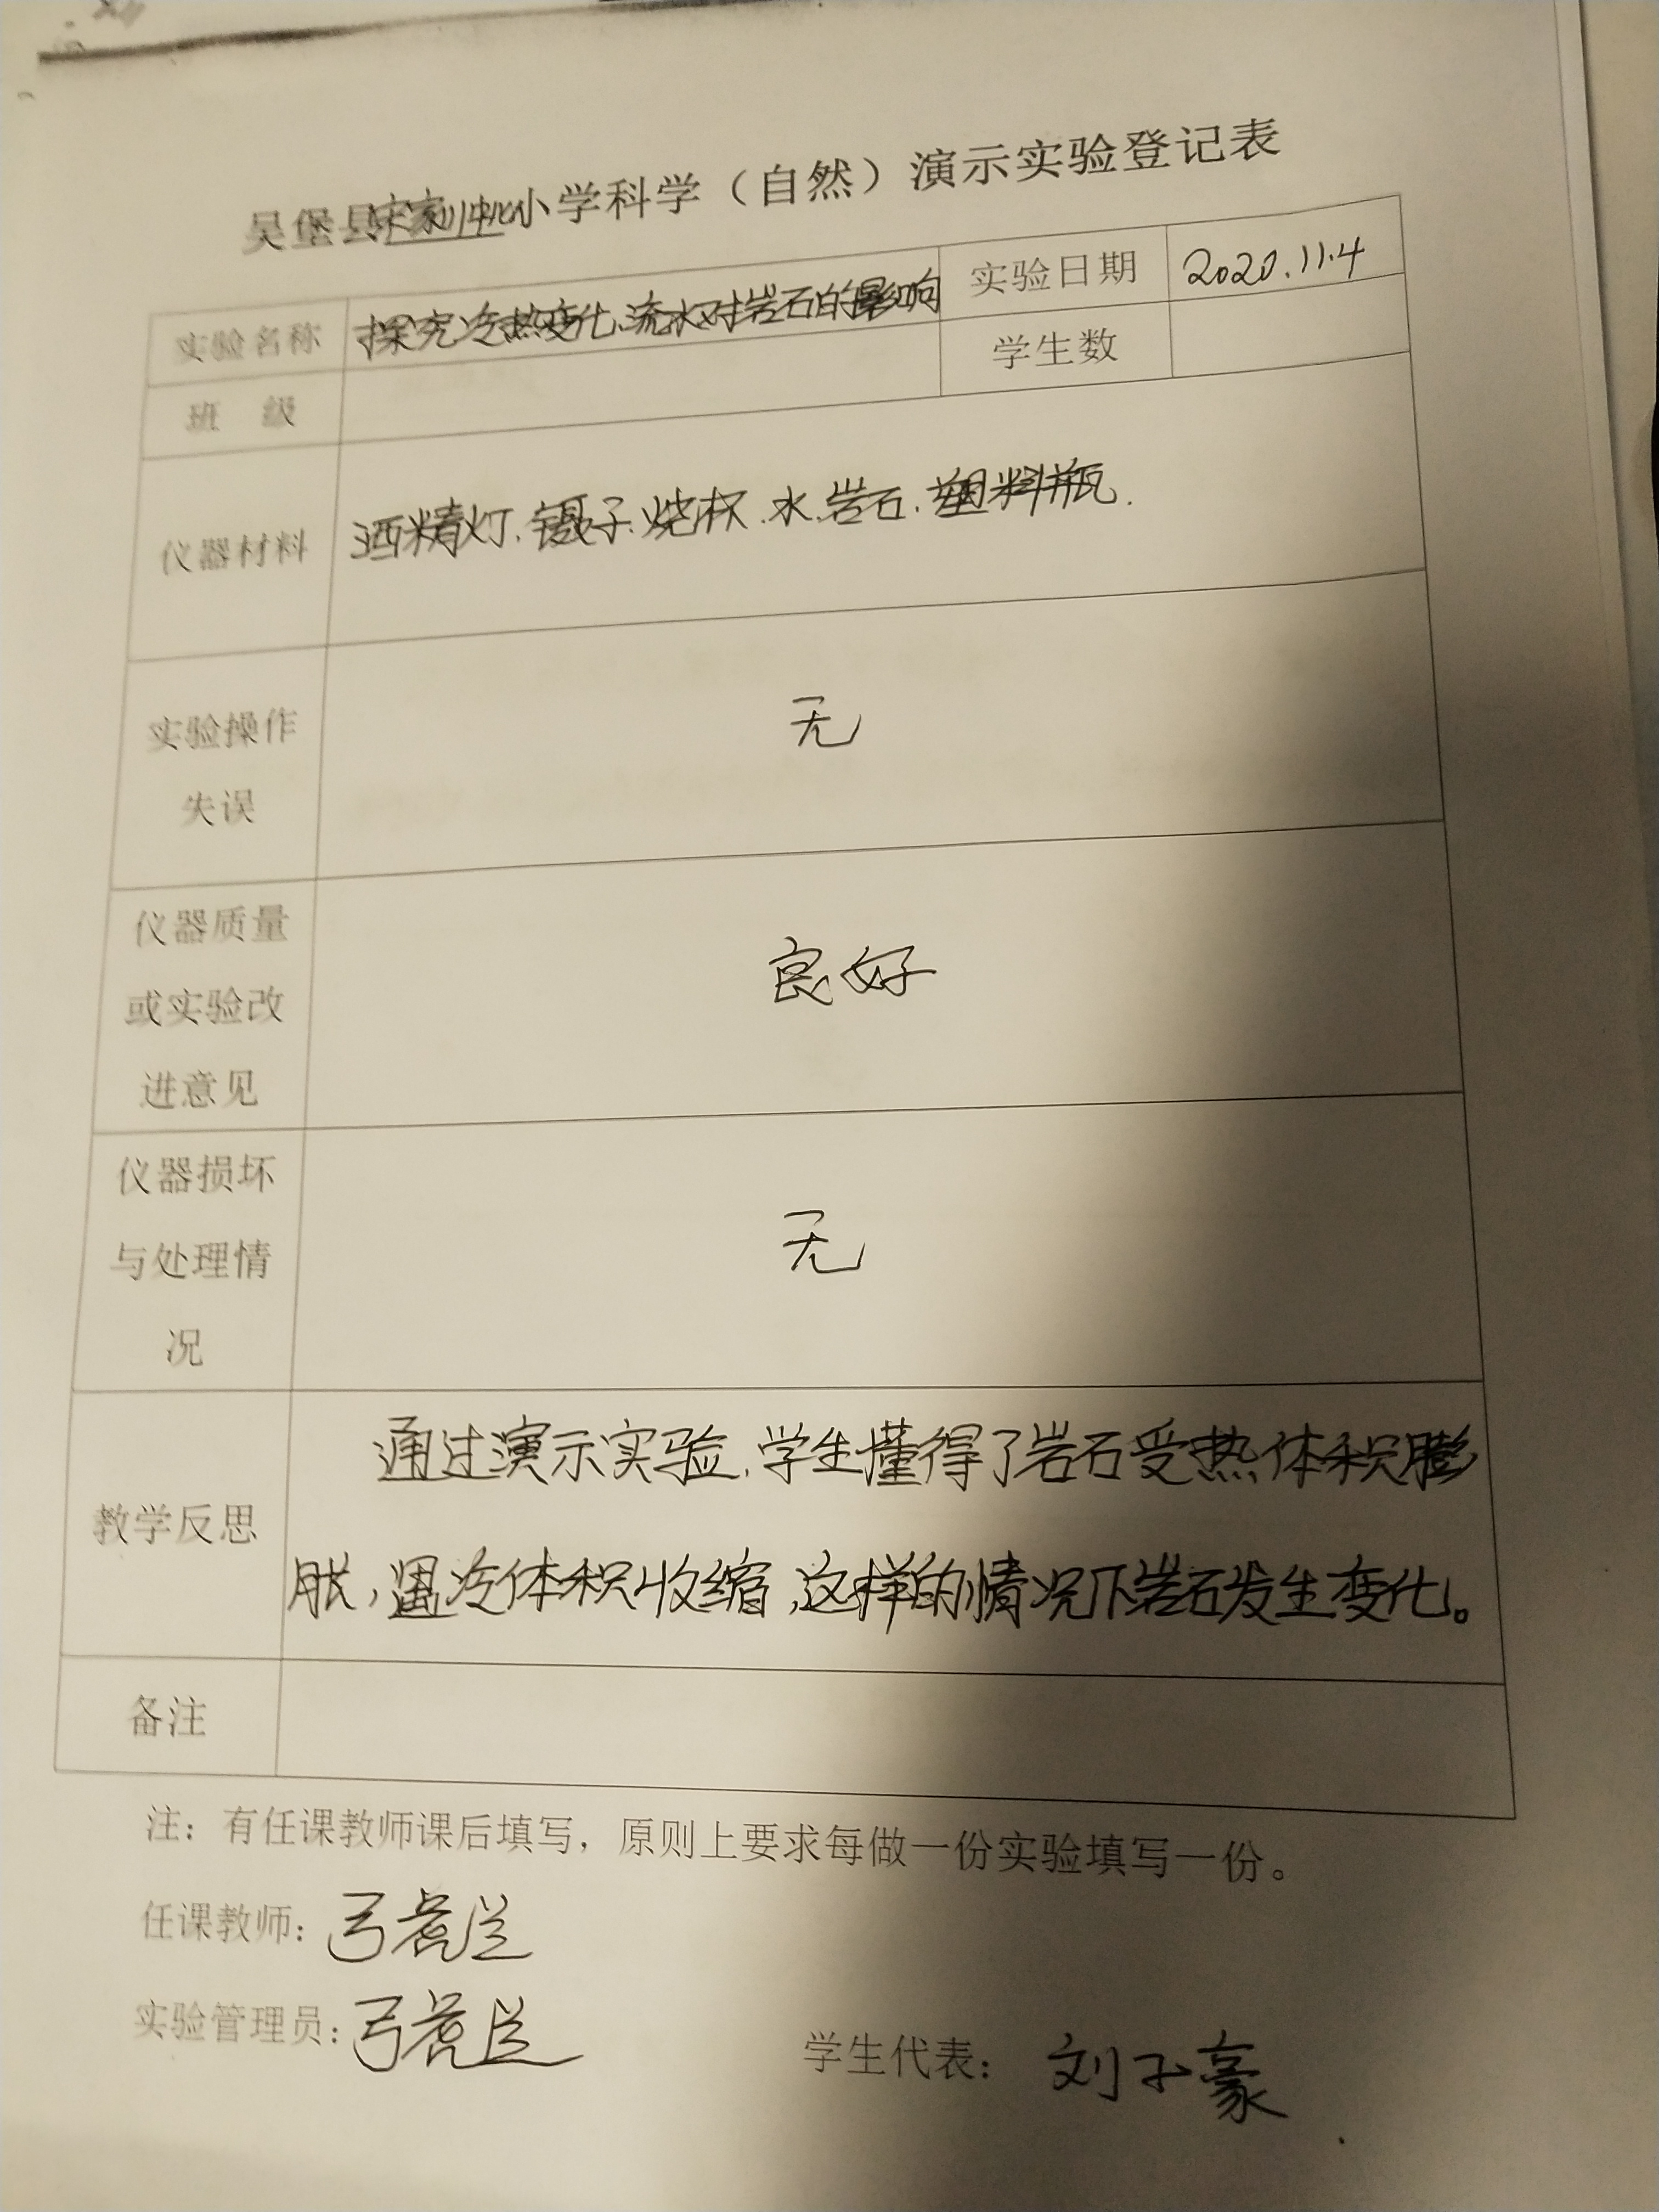 吴堡县宋家川中心小学科学（自然）演示实验登记表
实验名称 探究冷热变化、流水对岩石的影响 实验日期 2020.11.4
班 级 学生数
仪器材料 酒精灯.镊子.烧杯.水.岩石.塑料瓶.
实验操作
失误
无
仪器质量
或实验改
进意见
良好
仪器损坏
与处理情
况
无
教学反思
通过演示实验,学生懂得了岩石受热体积膨
胀,遇冷体积收缩,这样的情况下岩石发生变化。
备注
注：有任课教师课后填写，原则上要求每做一份实验填写一份。
任课教师：弓
实验管理员：弓
学生代表： 刘子豪